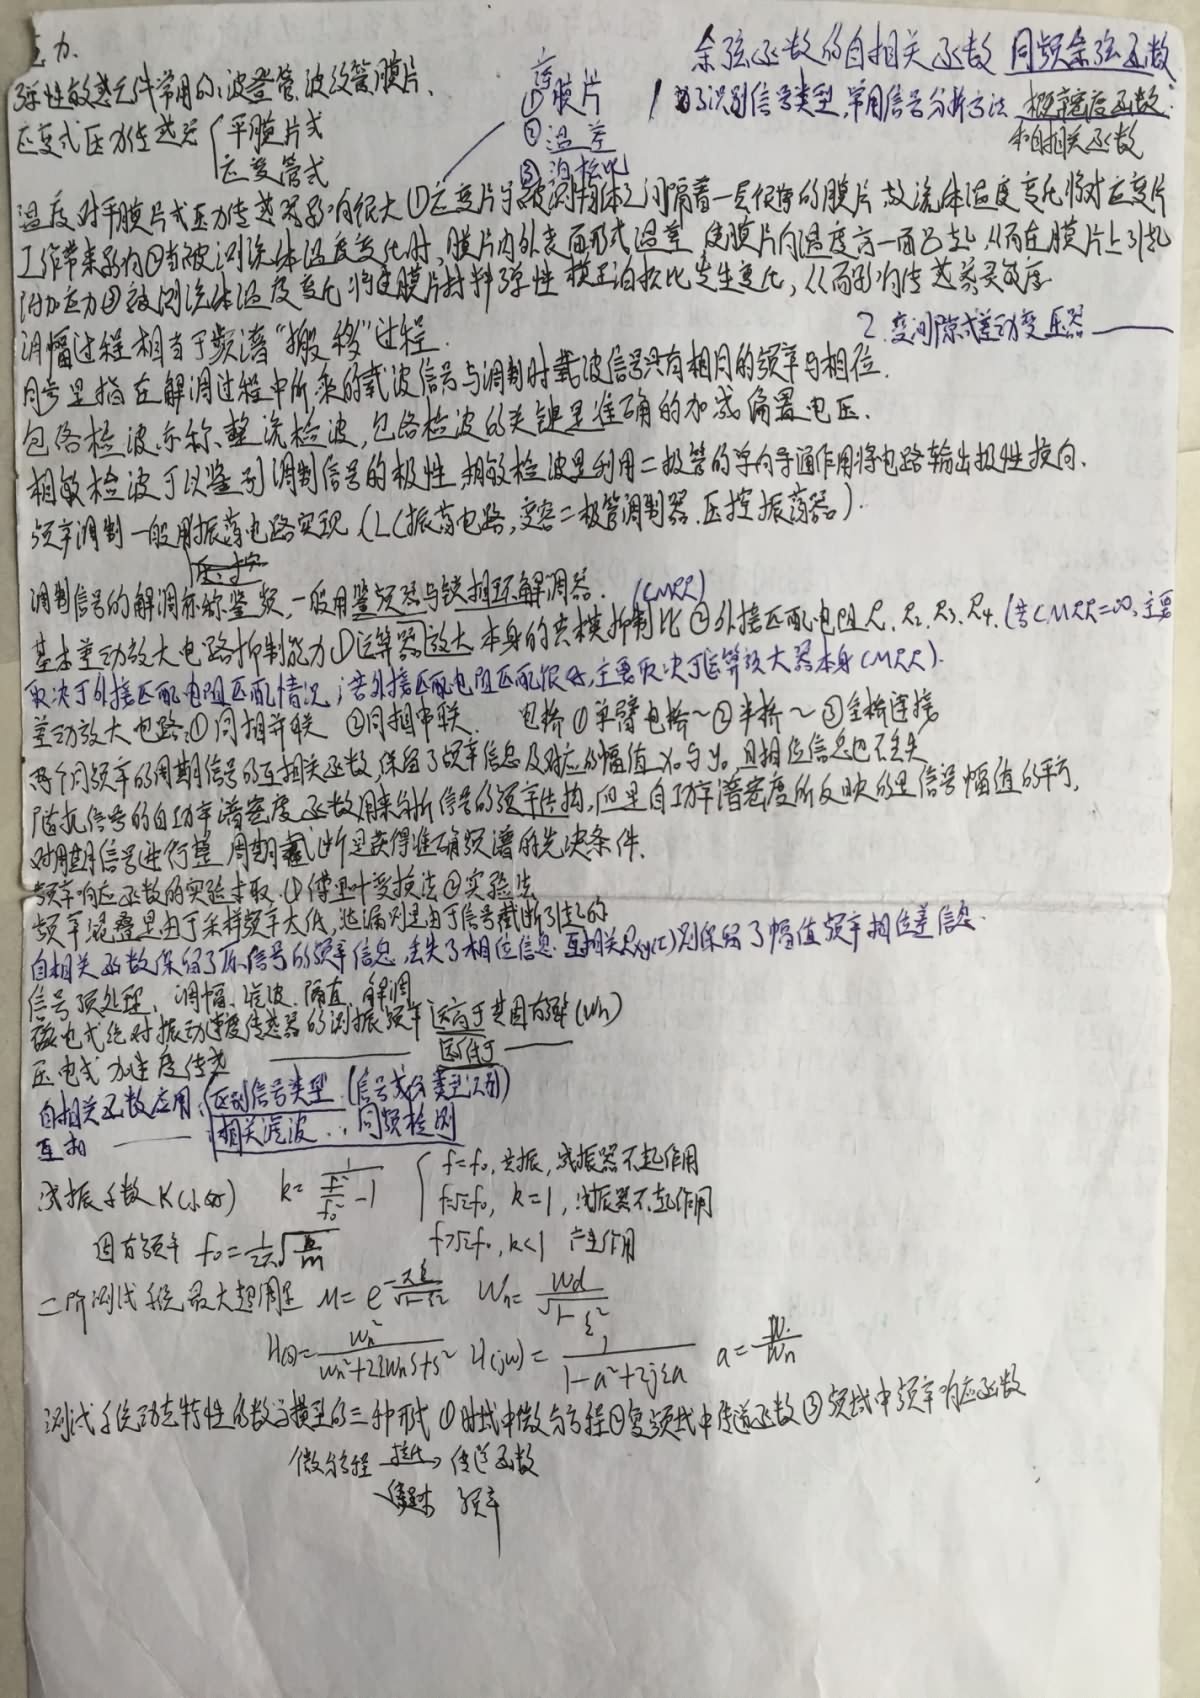 力.
余弦函数的自相关函数 同频余弦函数
弹性敏感元件常用的:波登管、波纹管、膜片、
应变式压力传感器 平膜片式
应变管式
①薄膜片
②温差
③泊松比
1 为了识别信号类型,常用信号分析方法 概率密度函数
和自相关函数
温度对平膜片式压力传感器影响很大①应变片与被测物体之间隔着一层很薄的膜片,故流体温度变化将对应变片
工作带来影响②当被测流体温度变化时,膜片内外表面形式温差 使膜片向温度高一面凸起,从而在膜片上引起
附加应力③被测流体温度变化 将使膜片材料弹性模量泊松比发生变化,从而影响传感器灵敏度
2.变间隙式差动变压器
调幅过程相当于频谱“搬移”过程.
同步是指在解调过程中所乘的载波信号与调制时载波信号只有相同的频率与相位.
包络检波亦称、整流检波,包络检波的关键是准确的加减偏置电压.
相敏检波可以鉴别调制信号的极性 相敏检波是利用二极管的单向导通作用将电路输出极性换向.
频率调制一般用振荡电路实现(LC振荡电路,变容二极管调制器.压控振荡器).
调制信号的解调亦称鉴频,一般用鉴频器与锁相环解调器. (CMRR)
基本差动放大电路抑制能力①运算器放大本身的共模抑制比②外接匹配电阻R1 R2 R3 R4.(若CMRR=∞,主要
取决于外接匹配电阻匹配情况;若外接匹配电阻匹配很好,主要取决于运算放大器本身CMRR).
差动放大电路:①同相并联 ②同相串联. 电桥①单臂电桥~②半桥~③全桥连接
两个同频率的周期信号的互相关函数,保留了频率信息及对应的幅值x0与y0 且相位信息也不丢失
随机信号的自功率谱密度函数用来分析信号的频率结构,但是自功率谱密度所反映的是信号幅值的平方,
对周期信号进行整周期截断是获得准确频谱的先决条件.
频率响应函数的实验求取.①傅里叶变换法②实验法
频率混叠是由于采样频率太低,泄漏则是由于信号截断引起的
自相关函数保留了原信号的频率信息,丢失了相位信息.互相关Rxy(τ)则保留了幅值频率相位差信息.
信号预处理,调幅、滤波、隔直、解调
磁电式绝对振动速度传感器的测振频率远高于其固有频率(Wn)
压电式加速度传感 远低于
自相关函数应用:区别信号类型(信号成分类型识别)
互相 相关滤波..同频检测
减振系数K(小好) k=1/(f²/f0²-1) f=f0,共振,减振器不起作用
f=√2f0, k=1,减振器不起作用
固有频率 f0=1/2π√(k/m) f>√2f0,k<1 产生作用
二阶测试系统最大超调量 M=e^(-πξ/√(1-ξ²)) Wn=Wd/√(1-ξ²)
H(s)=Wn²/(Wn²+2ξWnS+S²) H(jw)=1/(1-a²+2jξa) a=W/Wn
测试系统动态特性的数学模型的三种形式①时域中微分方程②复频域中传递函数③频域中频率响应函数
微分方程 拉氏→ 传递函数
频率